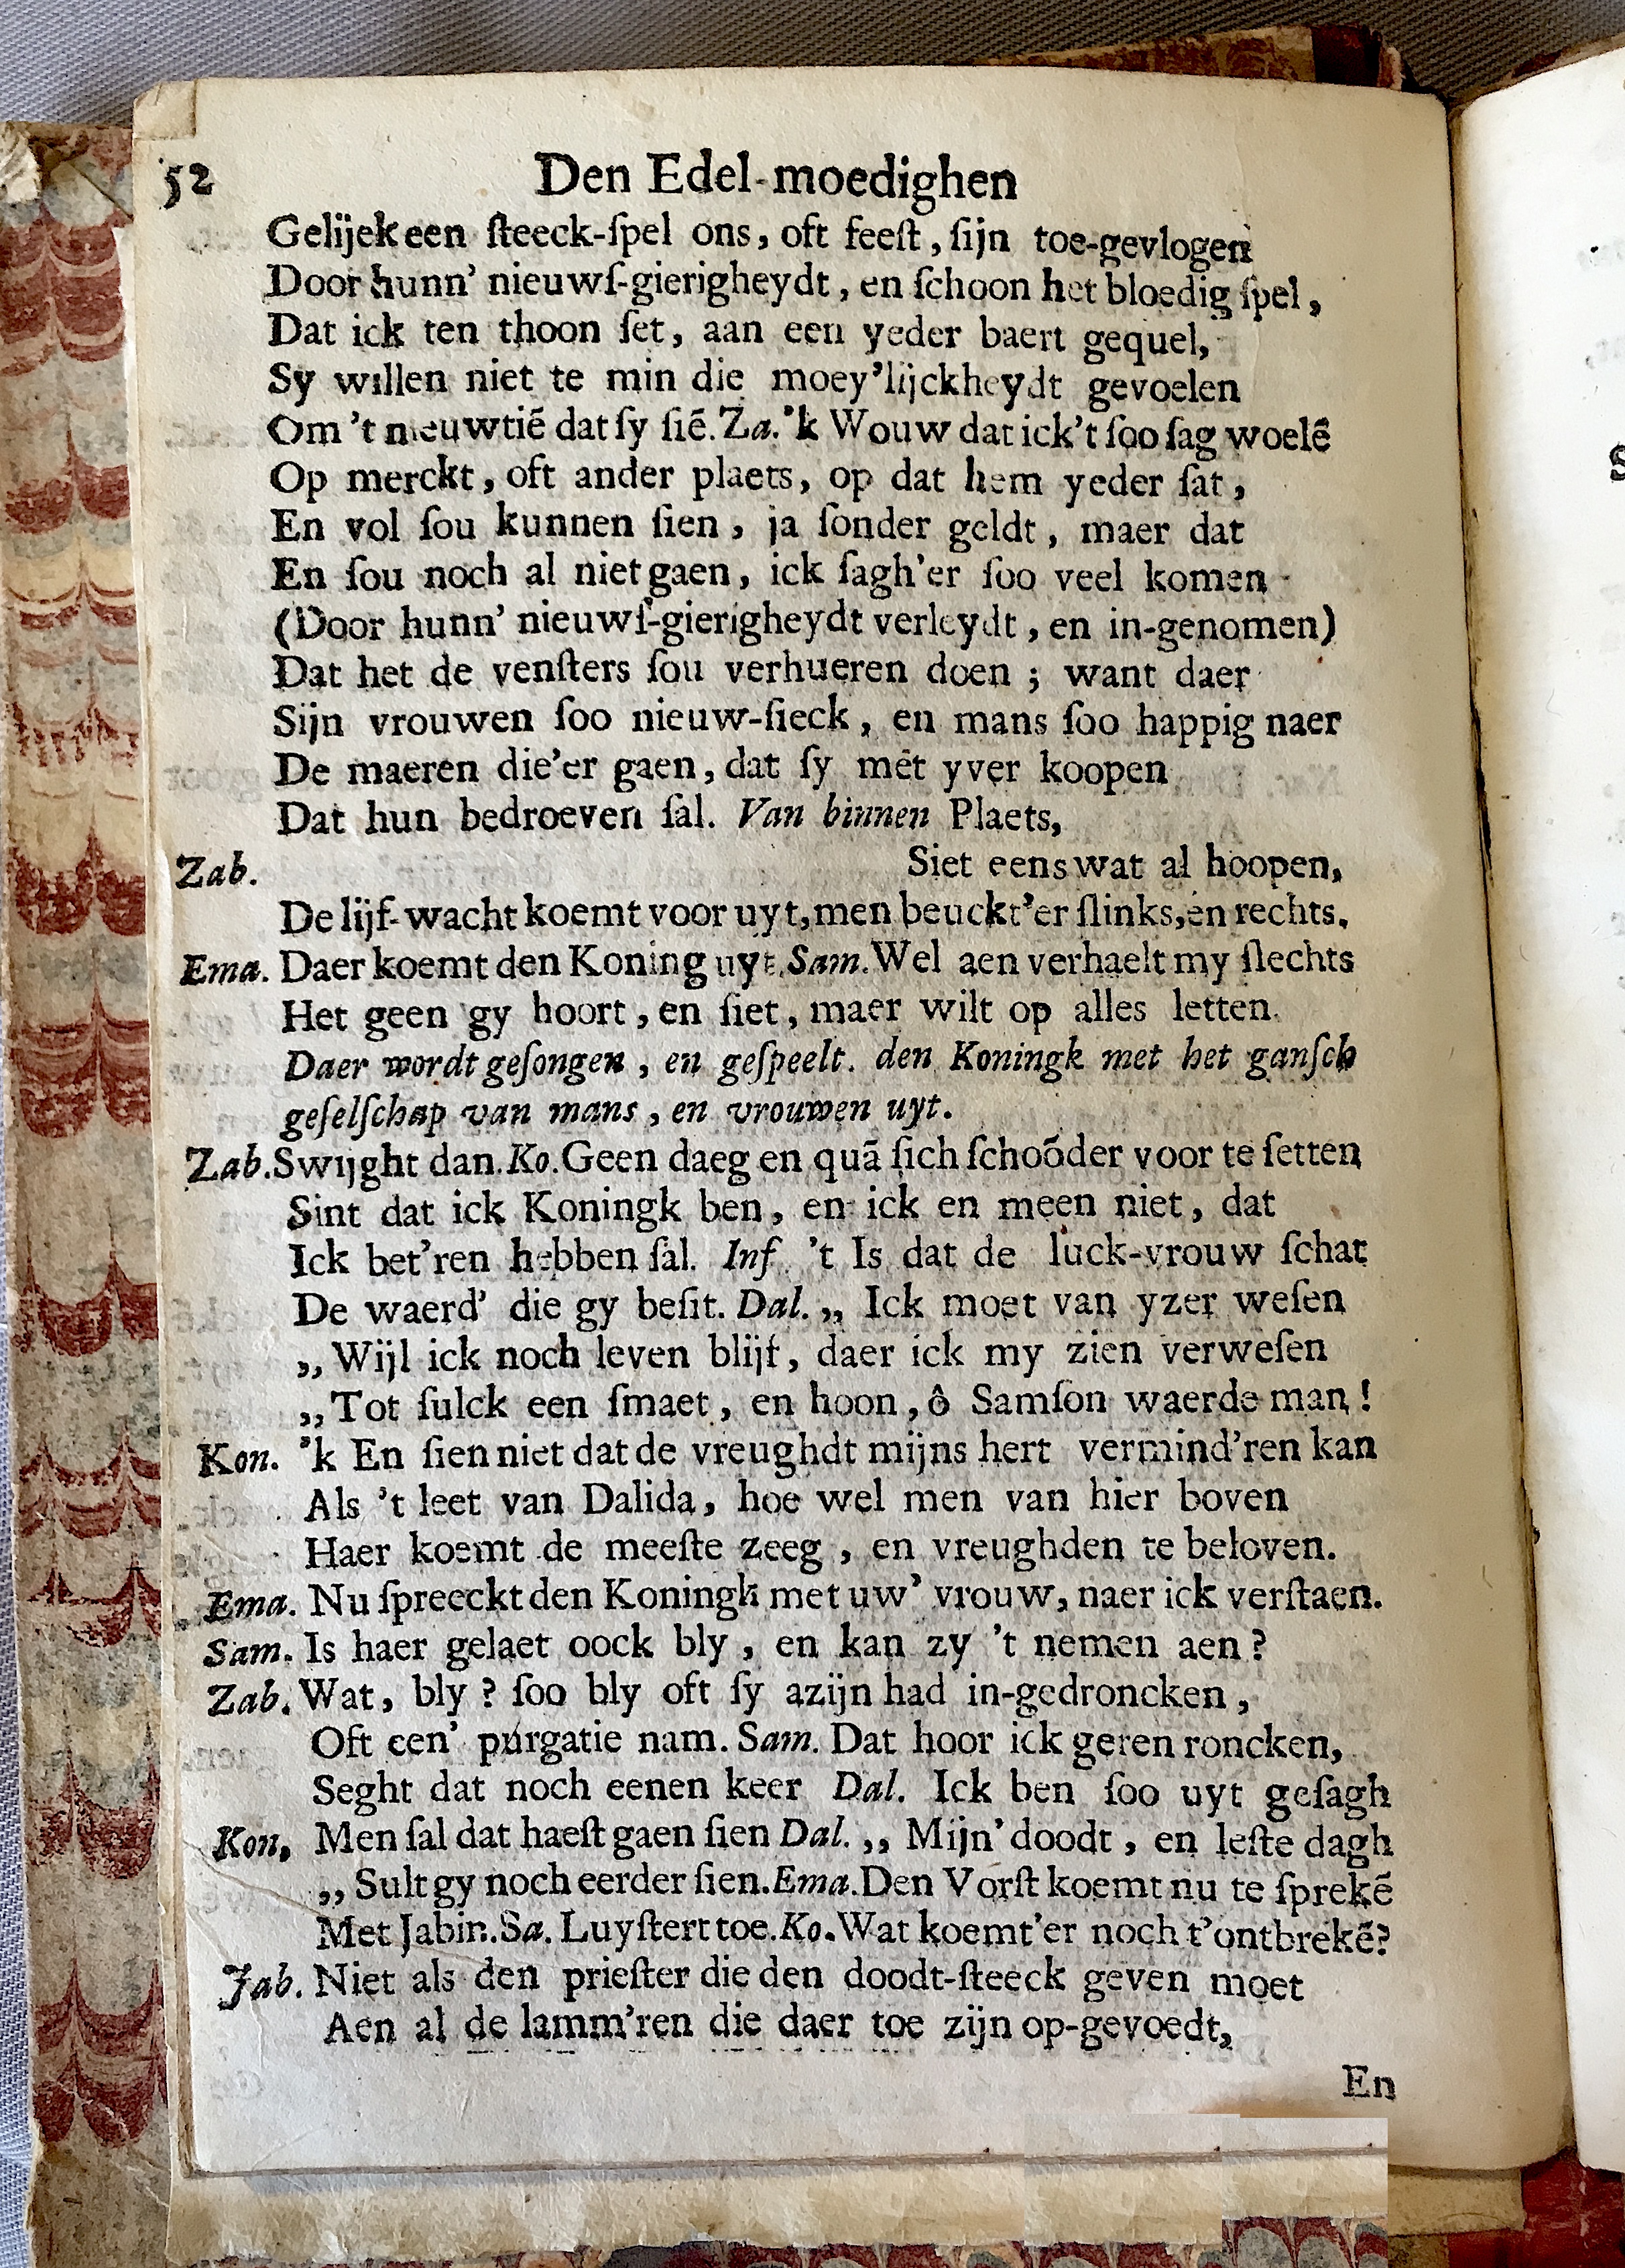 52 Den Edel-moedighen
Gelijck een ſteeck-ſpel ons, oft feeſt, ſijn toe-gevlogen
Door hunn' nieuwſ-gierigheydt, en ſchoon het bloedig ſpel,
Dat ick ten thoon ſet, aan een yeder baert gequel,
Sy willen niet te min die moey'lijckheydt gevoelen
Om 't nieuwtiē dat ſy ſiē. Za. 'k Wouw dat ick't ſoo ſag woelē
Op merckt, oft ander plaets, op dat hem yeder ſat,
En vol ſou kunnen ſien, ja ſonder geldt, maer dat
En ſou noch al niet gaen, ick ſagh'er ſoo veel komen
(Door hunn' nieuwſ-gierigheydt verleydt, en in-genomen)
Dat het de venſters ſou verhueren doen; want daer
Sijn vrouwen ſoo nieuw-ſieck, en mans ſoo happig naer
De maeren die'er gaen, dat ſy mét yver koopen
Dat hun bedroeven ſal. Van binnen Plaets,
Zab. Siet eens wat al hoopen,
De lijf-wacht koemt voor uyt, men beuckt'er ſlinks, en rechts.
Ema. Daer koemt den Koning uyt. Sam. Wel aen verhaelt my ſlechts
Het geen gy hoort, en ſiet, maer wilt op alles letten.
Daer wordt geſongen, en geſpeelt. den Koningk met het ganſch
geſelſchap van mans, en vrouwen uyt.
Zab. Swijght dan. Ko. Geen daeg en quā ſich ſchoōder voor te ſetten
Sint dat ick Koningk ben, en ick en meen niet, dat
Ick bet'ren hebben ſal. Inf. 't Is dat de luck-vrouw ſchat
De waerd' die gy beſit. Dal. ,, Ick moet van yzer weſen
,, Wijl ick noch leven blijf, daer ick my zien verweſen
,, Tot ſulck een ſmaet, en hoon, ô Samſon waerde man!
Kon. 'k En ſien niet dat de vreughdt mijns hert vermind'ren kan
Als 't leet van Dalida, hoe wel men van hier boven
Haer koemt de meeſte zeeg, en vreughden te beloven.
Ema. Nu ſpreeckt den Koningk met uw' vrouw, naer ick verſtaen.
Sam. Is haer gelaet oock bly, en kan zy 't nemen aen?
Zab. Wat, bly? ſoo bly oft ſy azijn had in-gedroncken,
Oft een' purgatie nam. Sam. Dat hoor ick geren roncken,
Seght dat noch eenen keer Dal. Ick ben ſoo uyt geſagh
Kon, Men ſal dat haeſt gaen ſien Dal. ,, Mijn' doodt, en leſte dagh
,, Sult gy noch eerder ſien. Ema. Den Vorſt koemt nu te ſprekē
Met Jabin. Sa. Luyſtert toe. Ko. Wat koemt'er noch t'ontbrekē?
Jab. Niet als den prieſter die den doodt-ſteeck geven moet
Aen al de lamm'ren die daer toe zijn op-gevoedt,
En